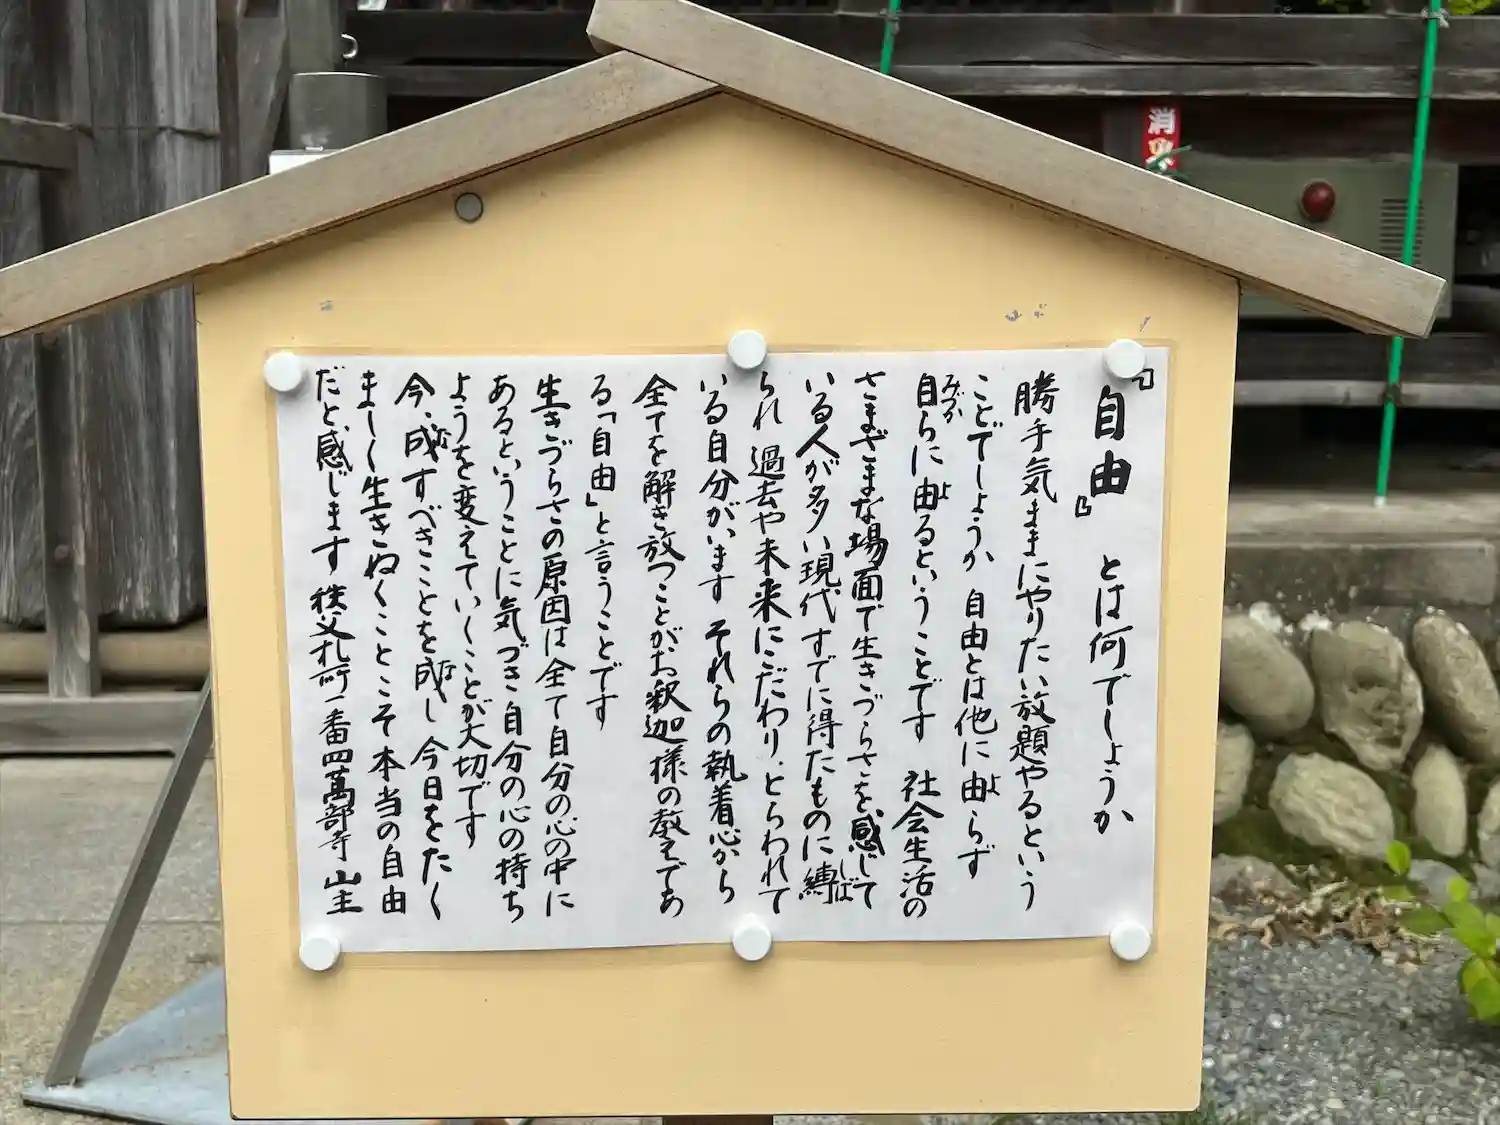 『自由』とは何でしょうか
勝手気ままにやりたい放題やるという
ことでしょうか 自由とは他に由らず
自らに由るということです 社会生活の
さまざまな場面で生きづらさを感じて
いる人が多い現代すでに得たものに縛
られ 過去や未来にこだわり、とらわれて
いる自分がいます それらの執着心から
全てを解き放つことがお釈迦様の教えであ
る「自由」と言うことです
生きづらさの原因は全て自分の心の中に
あるということに気づき自分の心の持ち
ようを変えていくことが大切です
今、成すべきことを成し今日をたく
ましく生きぬくことこそ本当の自由
だと感じます 秩父札所一番四萬部寺 山主
みずか
よ
よ
しば
な
な
消火